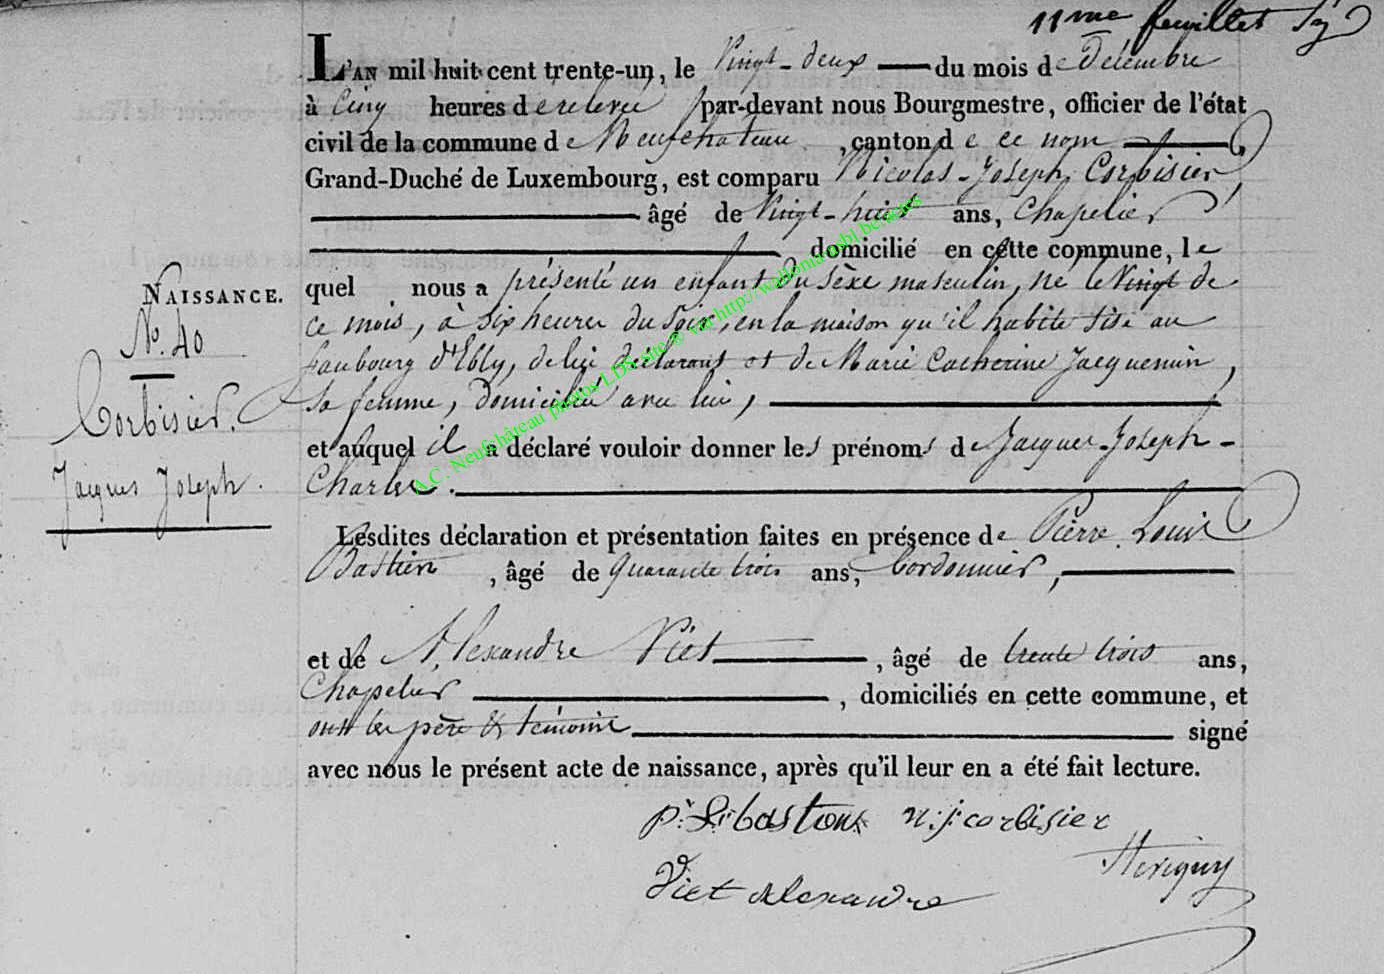 11me feuillet
L'AN mil huit cent trente-un, le Vingt-deux du mois de Décembre
à Cinq heures de relevée par-devant nous Bourgmestre, officier de l'état
civil de la commune de Neufchateau, canton de ce nom
Grand-Duché de Luxembourg, est comparu Nicolas-Joseph Corbisier,
âgé de Vingt-huit ans, Chapelier
domicilié en cette commune, le
quel nous a présenté un enfant du sèxe masculin, né le Vingt de
ce mois, à Six heures du Soir, en la maison qu'il habite sise au
faubourg d'Ebly, de lui déclarant et de Marie Catherine Jacquemin,
Sa femme, Domiciliée avec lui,
et auquel il a déclaré vouloir donner les prénoms de Jacques-Joseph-
Charles.
NAISSANCE.
No. 40
Corbisier.
Jacques Joseph.
Lesdites déclaration et présentation faites en présence de Pierre Louis
Bastien, âgé de quarante trois ans, Cordonnier,
et de Alexandre Viet, âgé de trente trois ans,
Chapelier, domiciliés en cette commune, et
ont les père & témoins signé
avec nous le présent acte de naissance, après qu'il leur en a été fait lecture.
n: j: corbisier
Viet Alexandre
A.C. Neufchâteau photos LDS site @ via http://wallonia-asbl.be/actes